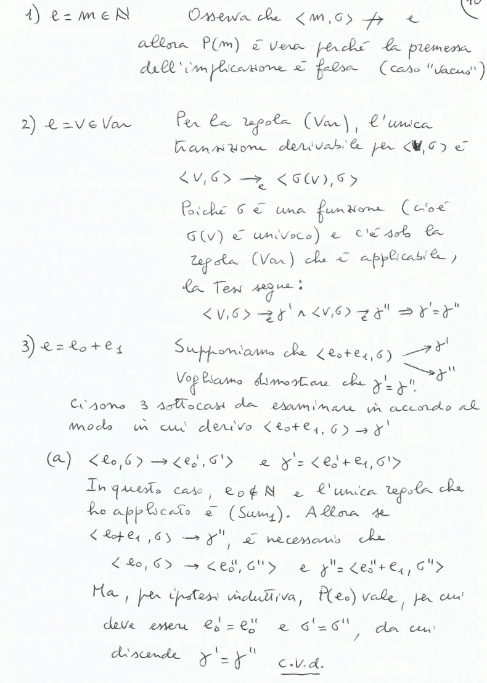 1) e = m ∈ ℕ Osserva che <m,σ> ↛ e
allora P(m) è vera perché la premessa
dell'implicazione è falsa (caso "vacuo")
2) e = v ∈ Var Per la regola (Var), l'unica
transizione derivabile per <v,σ> è
<v,σ> →e <σ(v),σ>
Poiché σ è una funzione (cioè
σ(v) è univoco) e c'è solo la
regola (Var) che è applicabile,
la Tesi segue:
<v,σ> →e γ' ∧ <v,σ> →e γ'' ⇒ γ' = γ''
3) e = e0 + e1 Supponiamo che <e0+e1,σ> → γ'
→ γ''
Vogliamo dimostrare che γ' = γ''.
Ci sono 3 sottocasi da esaminare in accordo al
modo in cui derivo <e0+e1,σ> → γ'
(a) <e0,σ> → <e0',σ'> e γ' = <e0'+e1,σ'>
In questo caso, e0 ∉ ℕ e l'unica regola che
ho applicato è (Sum1). Allora se
<e0+e1,σ> → γ'', è necessario che
<e0,σ> → <e0'',σ''> e γ'' = <e0''+e1,σ''>
Ma, per ipotesi induttiva, P(e0) vale, per cui
deve essere e0' = e0'' e σ' = σ'', da cui
discende γ' = γ'' c.v.d.